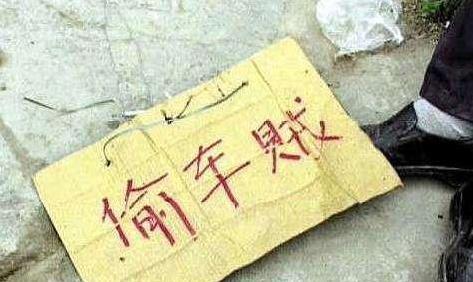 偷车贼